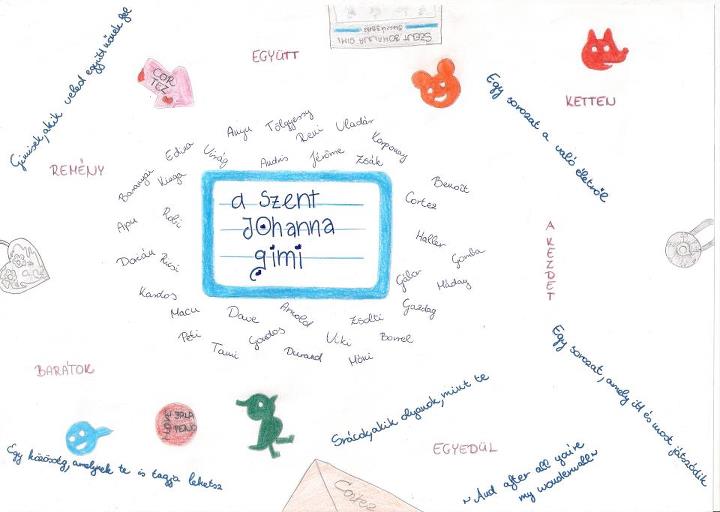 Gimisek, akik veled együtt nőnek fel
EGYÜTT
SZENT JOHANNA GIMI
COR
TEZ
Egy sorozat a való életről
KETTEN
REMÉNY
Anyu
Tölgyessy
Edina
Virág
Reni
Vladár
Kárpáthy
András
Jérôme
Zsák
Baranyai
Kinga
Benoît
Cortez
Apu
Robi
a Szent
Johanna
gimi
Haller
Gomba
Dacán
Ricsi
Máday
Gábor
Gazdag
Kardos
Macu
Dave
Arnold
Zsolti
Peti
Gondos
Viki
Borrel
Tami
Durand
Móni
A KEZDET
BARÁTOK
Egy közösség, amelynek te is tagja lehetsz
Srácok, akik olyanok, mint te
EGYEDÜL
Cortez
~And after all you're
my wonderwall~
Egy sorozat, amely itt és most játszódik